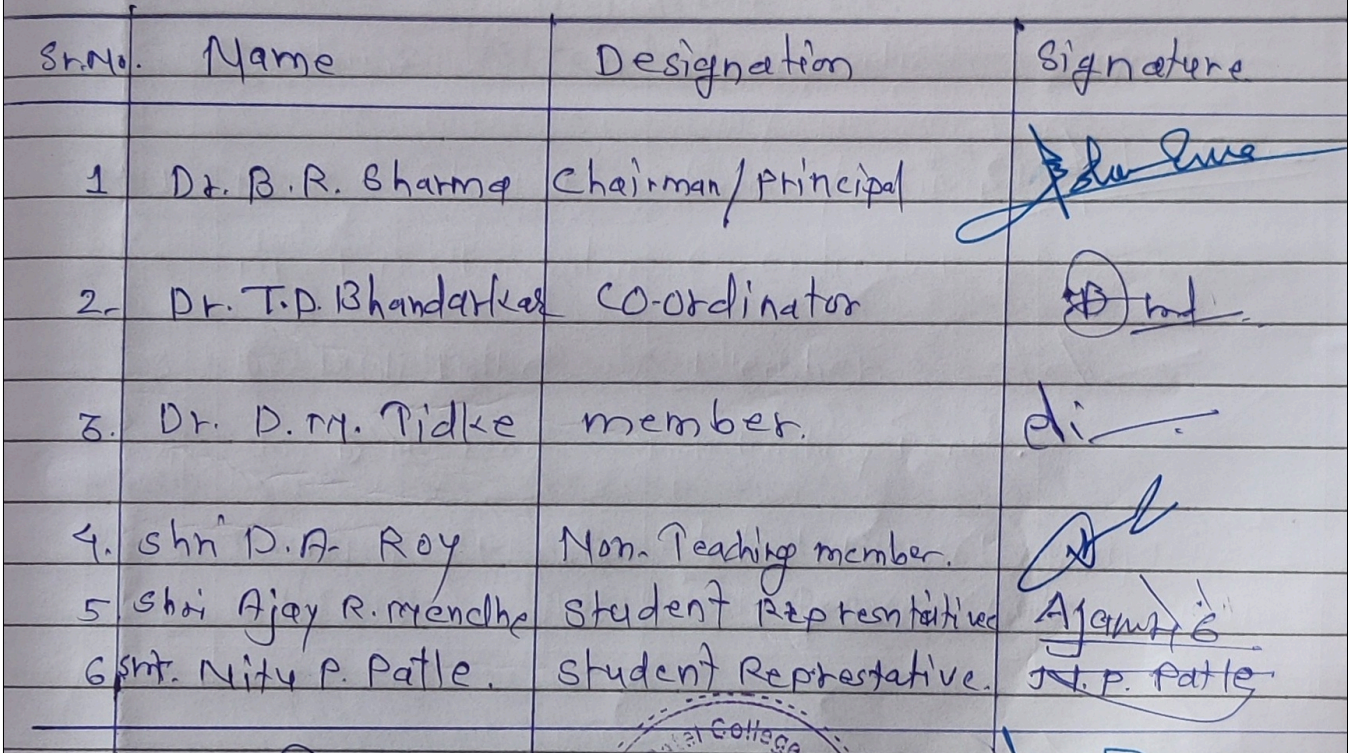 Sr.No. Name Designation Signature
1 Dr. B. R. Sharma Chairman / Principal
2- Dr. T.D. Bhandarkar CO-ordinator
3. Dr. D. M. Tidke member.
4. Shri D.A. Roy Non-Teaching member.
5 Shri Ajay R. Mendhe Student Represntaitive
6 Smt. Nitu P. Patle. Student Represtative. N. P. Patle
College